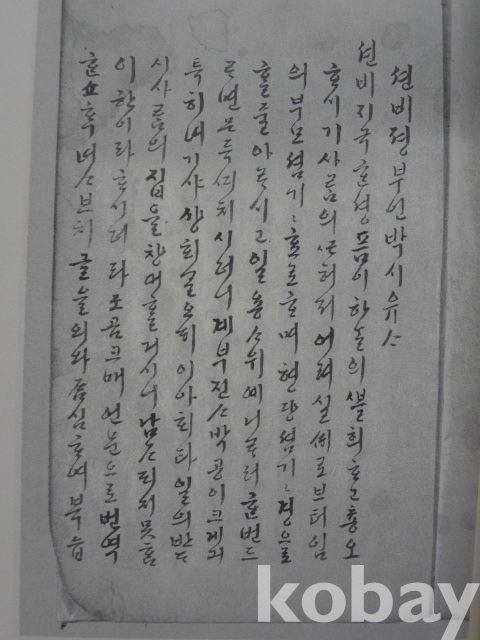 션비졍부인박시유ᄉ
션비지극ᄒᆞᆫ셩픔이하ᄂᆞᆯ의 ᄒᆞ고춍오
ᄒᆞ시기사ᄅᆞᆷ의 어려실ᄯᅢ로브터임
의부모셤기〻효로ᄒᆞ며현당셤기〻경으로
ᄒᆞᆯ줄아ᄅᆞ시고일용ᄉ위예니ᄅᆞ러ᄒᆞᆫ번드
ᄅᆞ면문득ᄭᆡ치시더니계부진ᄉ박공이크게긔
특히녀기샤샹회ᄀᆞᆯ오ᄃᆡ이아ᄒᆡ타일의반ᄃᆞ
시사ᄅᆞᆷ의집을창대ᄒᆞᆯ거시니남ᄌᆞ되지못홈
이한이라ᄒᆞ시더라조곰크매언문으로번역
ᄒᆞᆫ쇼ᄒᆞᆨ녀ᄉ브치글을외와 심ᄒᆞ여복습
kobay